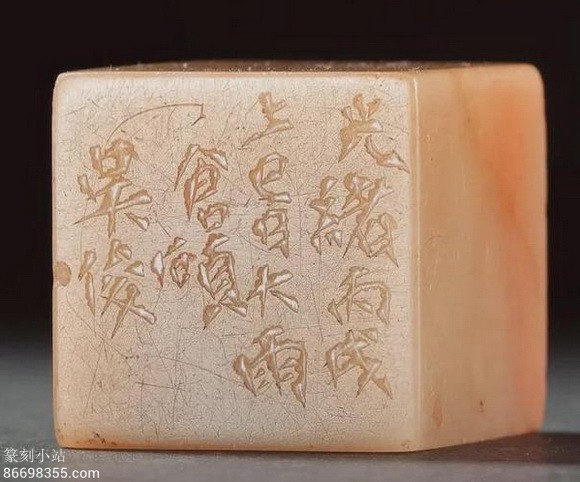 光緒丙戌
上巳日大雨
倉碩
吳俊
篆刻小站
86698355.com